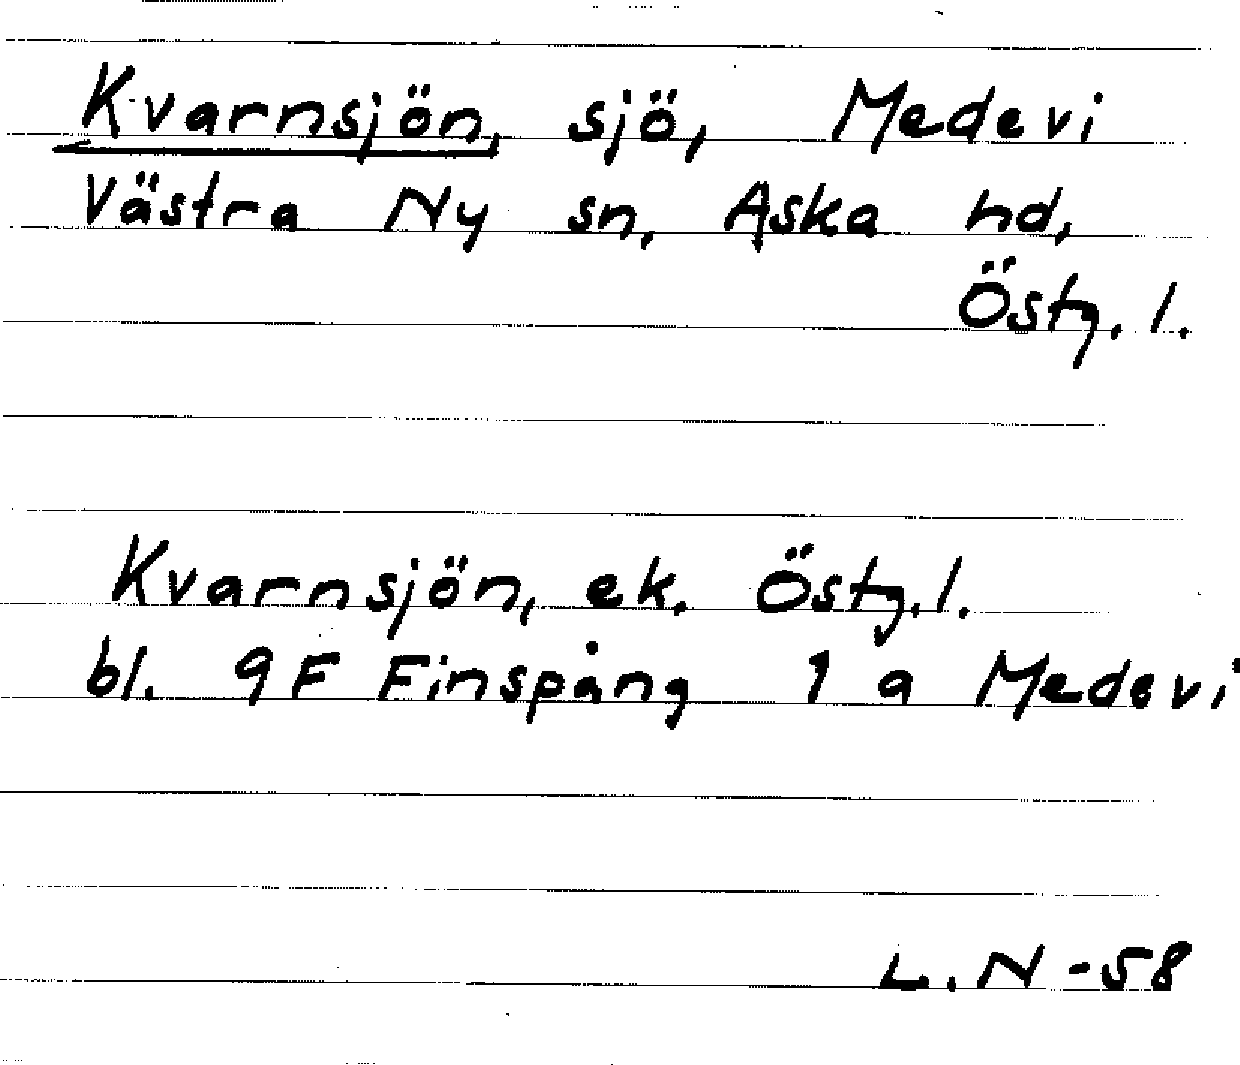 Kvarnsjön, sjö, Medevi
Västra Ny sn, Aska hd,
Östg. l.
Kvarnsjön, ek. Östg. l.
bl. 9F Finspång 1 a Medevi
L. N -58